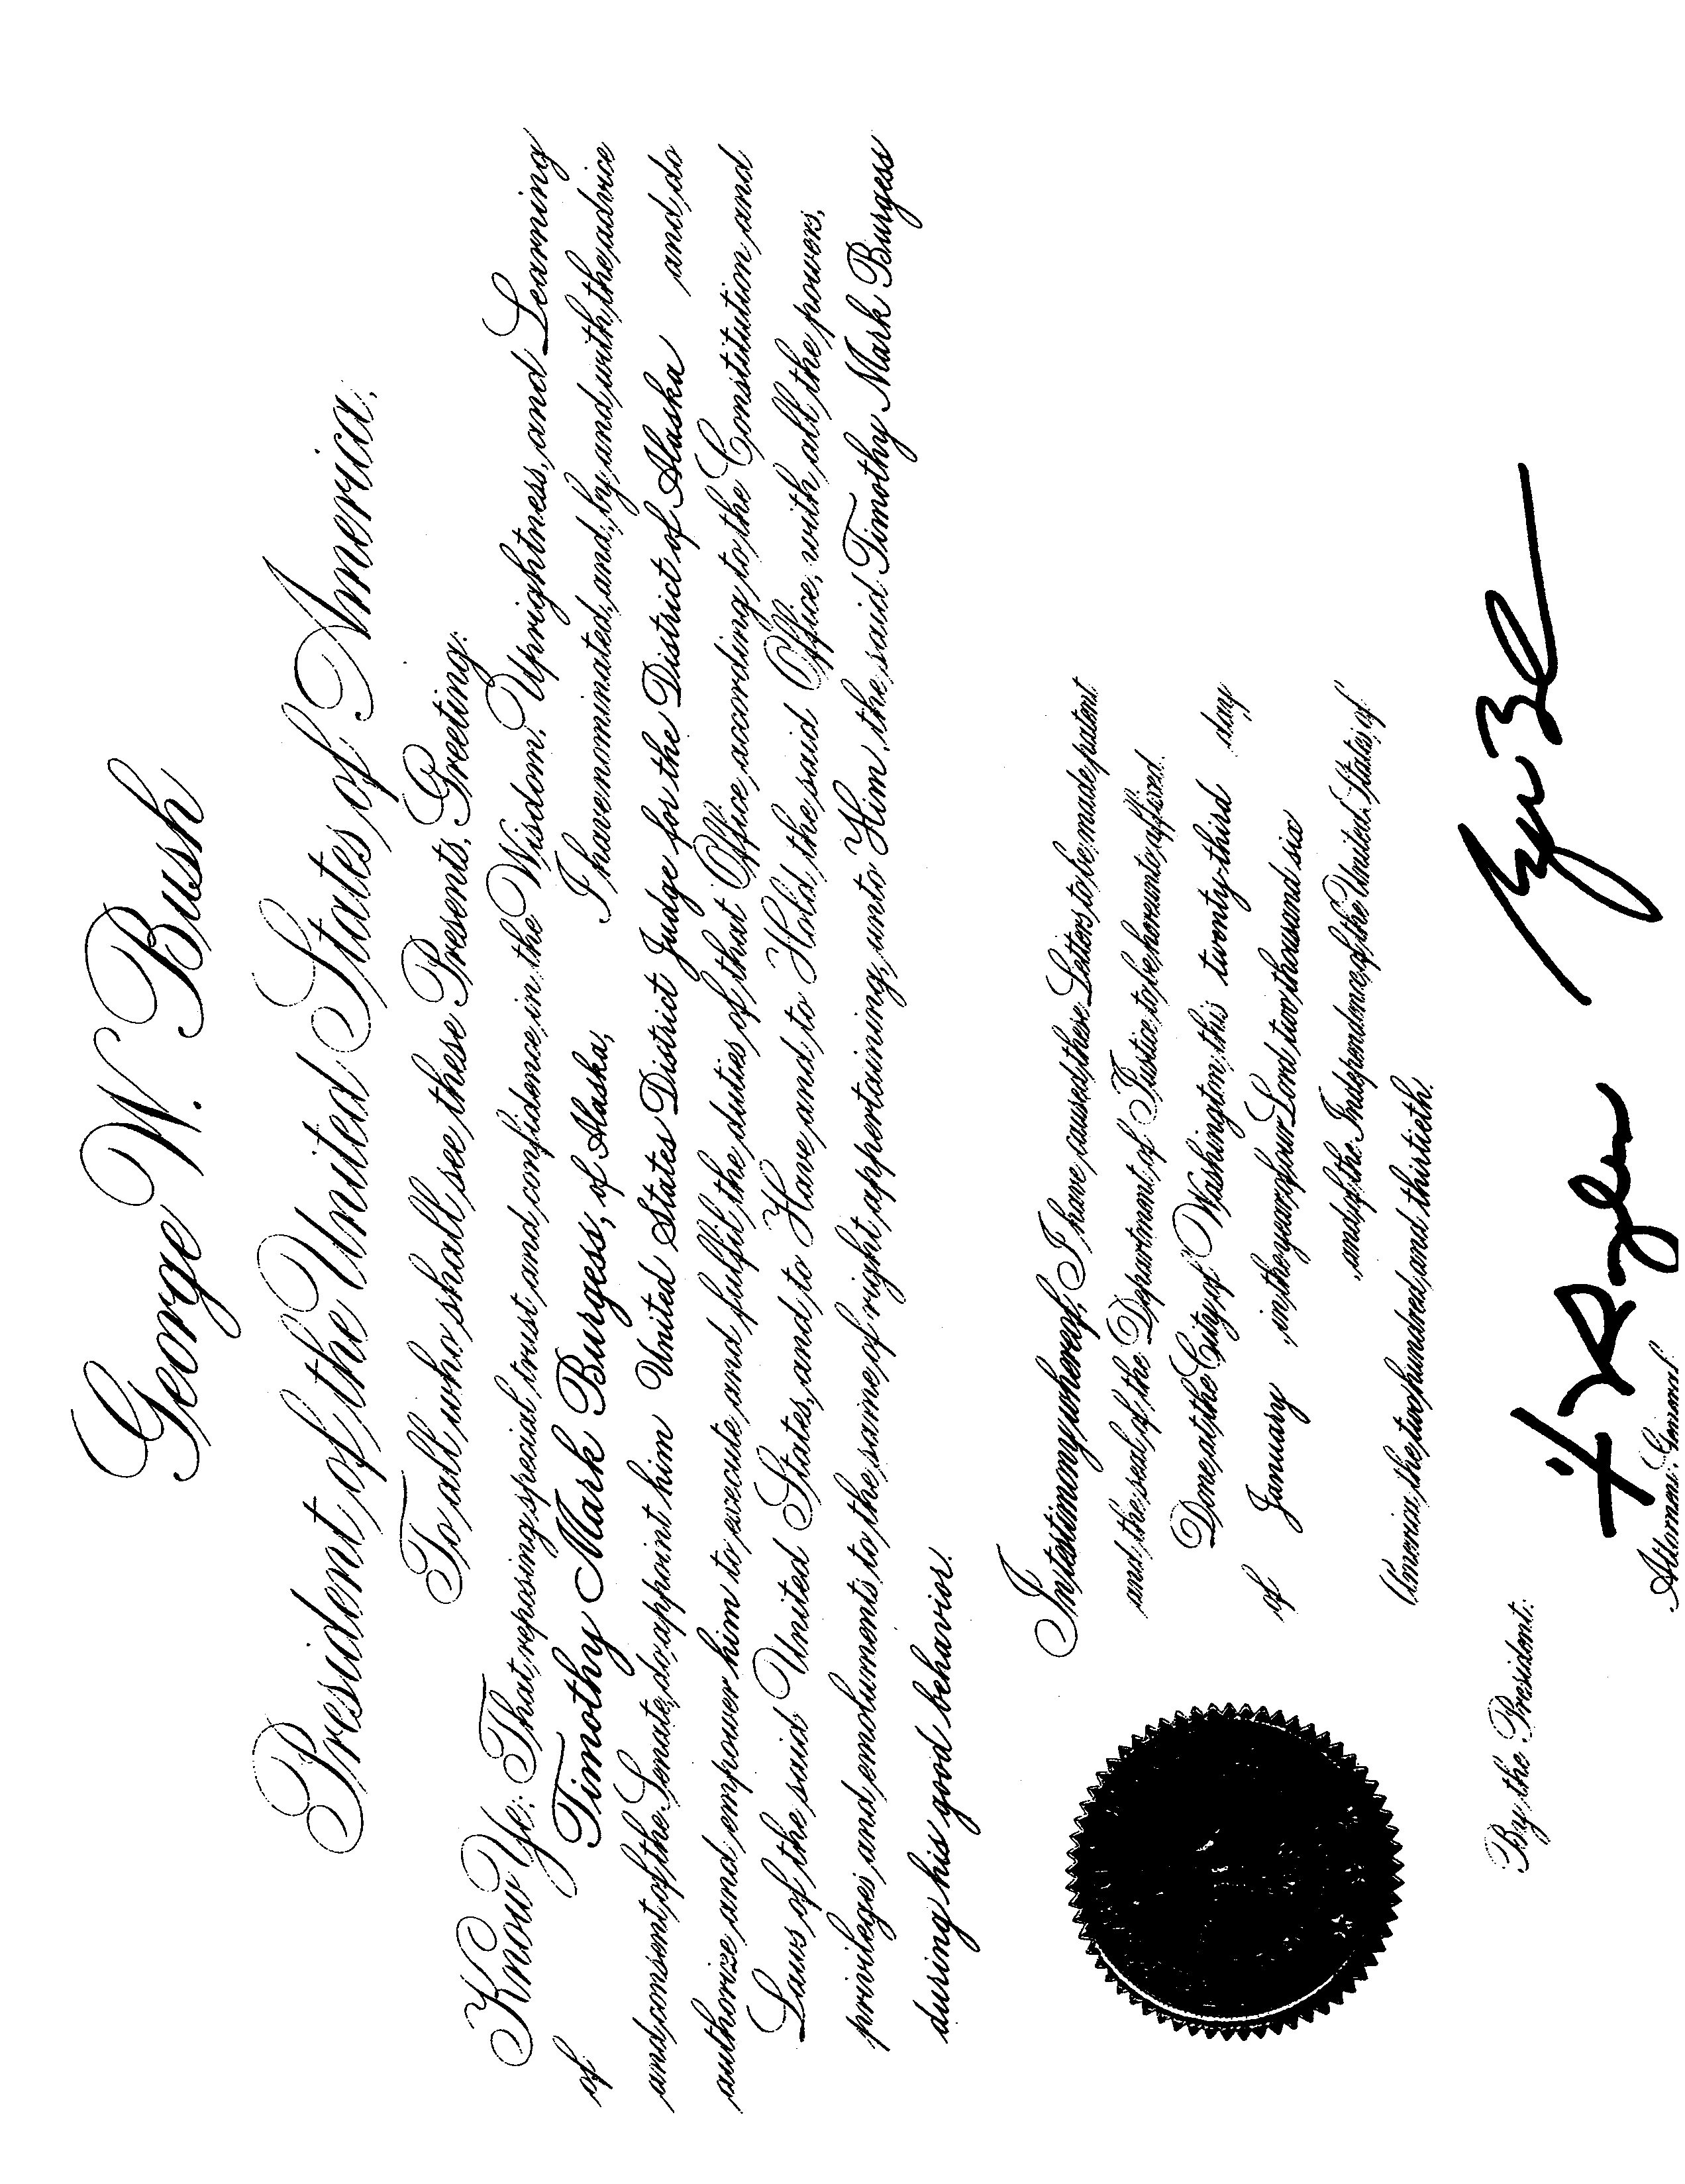 George W. Bush
President of the United States of America,
To all who shall see these Presents, Greeting:
Know Ye: That, reposing special trust and confidence in the Wisdom, Uprightness, and Learning
of Timothy Mark Burgess, of Alaska, I have nominated, and, by and with the advice
and consent of the Senate, do appoint him United States District Judge for the District of Alaska and do
authorize and empower him to execute and fulfil the duties of that Office according to the Constitution and
Laws of the said United States, and to Have and to Hold the said Office, with all the powers,
privileges and emoluments to the same of right appertaining, unto Him, the said Timothy Mark Burgess
during his good behavior.
In testimony whereof, I have caused these Letters to be made patent
and the seal of the Department of Justice to be hereunto affixed.
Done at the City of Washington this twenty-third day
of January in the year of our Lord two thousand six
, and of the Independence of the United States of
America the two hundred and thirtieth.
By the President:
Attorney General